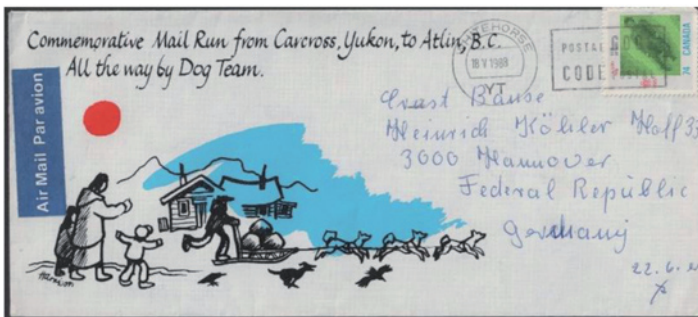 Commemorative Mail Run from Carcross, Yukon, to Atlin, B.C.
All the way by Dog Team.
Air Mail Par avion
WHITEHORSE
18 V 1988
YT
POSTAL
CODE
CANADA
74
Ernst Bause
Heinrich Köhler Hoff
3000 Hannover
Federal Republic
Germany
22.6.